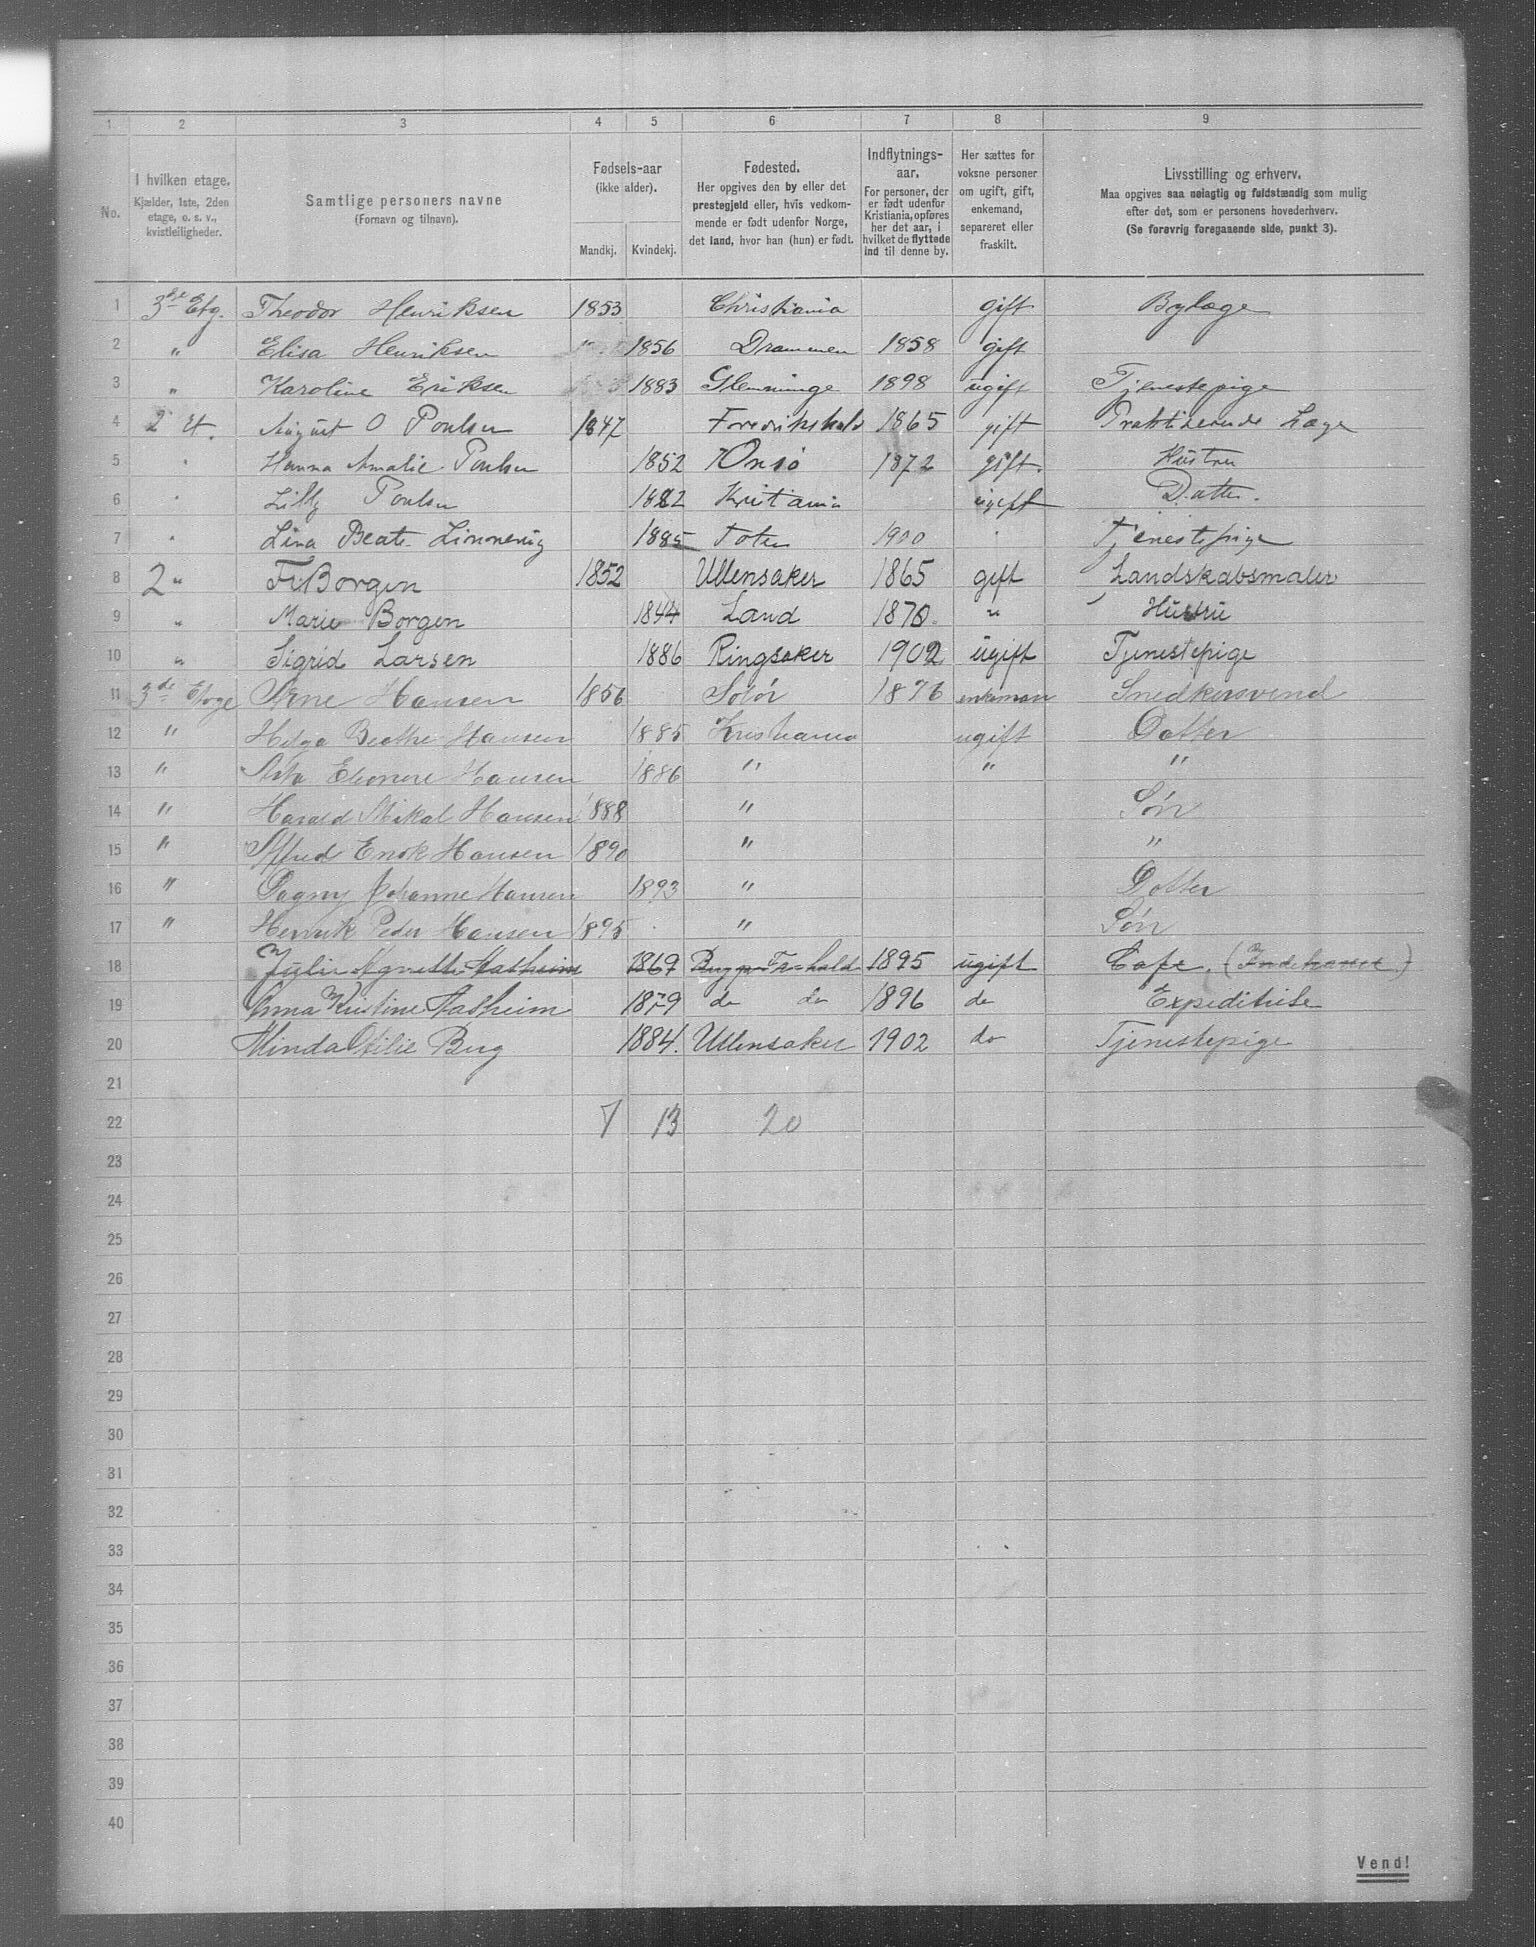 1 2 3 4 5 6 7 8 9
No.
I hvilken etage.
Kjælder, 1ste, 2den
etage, o. s. v.,
kvistleiligheder.
Samtlige personers navne
(Fornavn og tilnavn).
Fødsels-aar
(ikke alder).
Mandkj. Kvindekj.
Fødested.
Her opgives den by eller det
prestegjeld eller, hvis vedkom-
mende er født udenfor Norge,
det land, hvor han (hun) er født.
Indflytnings-
aar.
For personer, der
er født udenfor
Kristiania, opføres
her det aar, i
hvilket de flyttede
ind til denne by.
Her sættes for
voksne personer
om ugift, gift,
enkemand,
separeret eller
fraskilt.
Livsstilling og erhverv.
Maa opgives saa nøiagtig og fuldstændig som mulig
efter det, som er personens hovederhverv.
(Se forøvrig foregaaende side, punkt 3).
1 3de Etg. Theodor Henriksen 1853 Christiania gift Bylæge
2 " Elisa Henriksen 1856 Drammen 1858 gift
3 " Karoline Eriksen 1883 Glemminge 1898 ugift Tjenestepige
4 2 Et. August O Poulsen 1847 Fredrikshald 1865 gift Praktiserende Læge
5 " Hanna Amalie Poulsen 1852 Onsø 1872 gift. Hustru
6 " Lilly Poulsen 1882 Kristiania ugift Datter.
7 " Lina Beate 1885 Toten 1900 " Tjenestepige
8 2 " Fr Borgen 1852 Ullensaker 1865 gift Landskabsmaler
9 " Marie Borgen 1844 Land 1870. " Hustru
10 " Sigrid Larsen 1886 Ringsaker 1902 ugift Tjenestepige
11 3de Etage Arne Hansen 1856 Solør 1876 enkeman Snedkersvend
12 " Helga Beathe Hansen 1885 Kristiania ugift Dotter
13 " Asta Eleonore Hansen 1886 " " "
14 " Harald Mikal Hansen 1888 " Søn
15 " Alfred Enok Hansen 1890 " "
16 " Dagny Johanne Hansen 1893 " Dotter
17 " Henrik Peder Hansen 1895 " Søn
18 Julie Agnethe Aasheim 1869 1895 ugift Cafe.
19 Anna Kristine Aasheim 1879 do do 1896 do Expeditrise
20 Minda Otilie Berg 1884. Ullensaker 1902 do Tjenestepige
21
22 7 13 20
23
24
25
26
27
28
29
30
31
32
33
34
35
36
37
38
39
40
Vend!